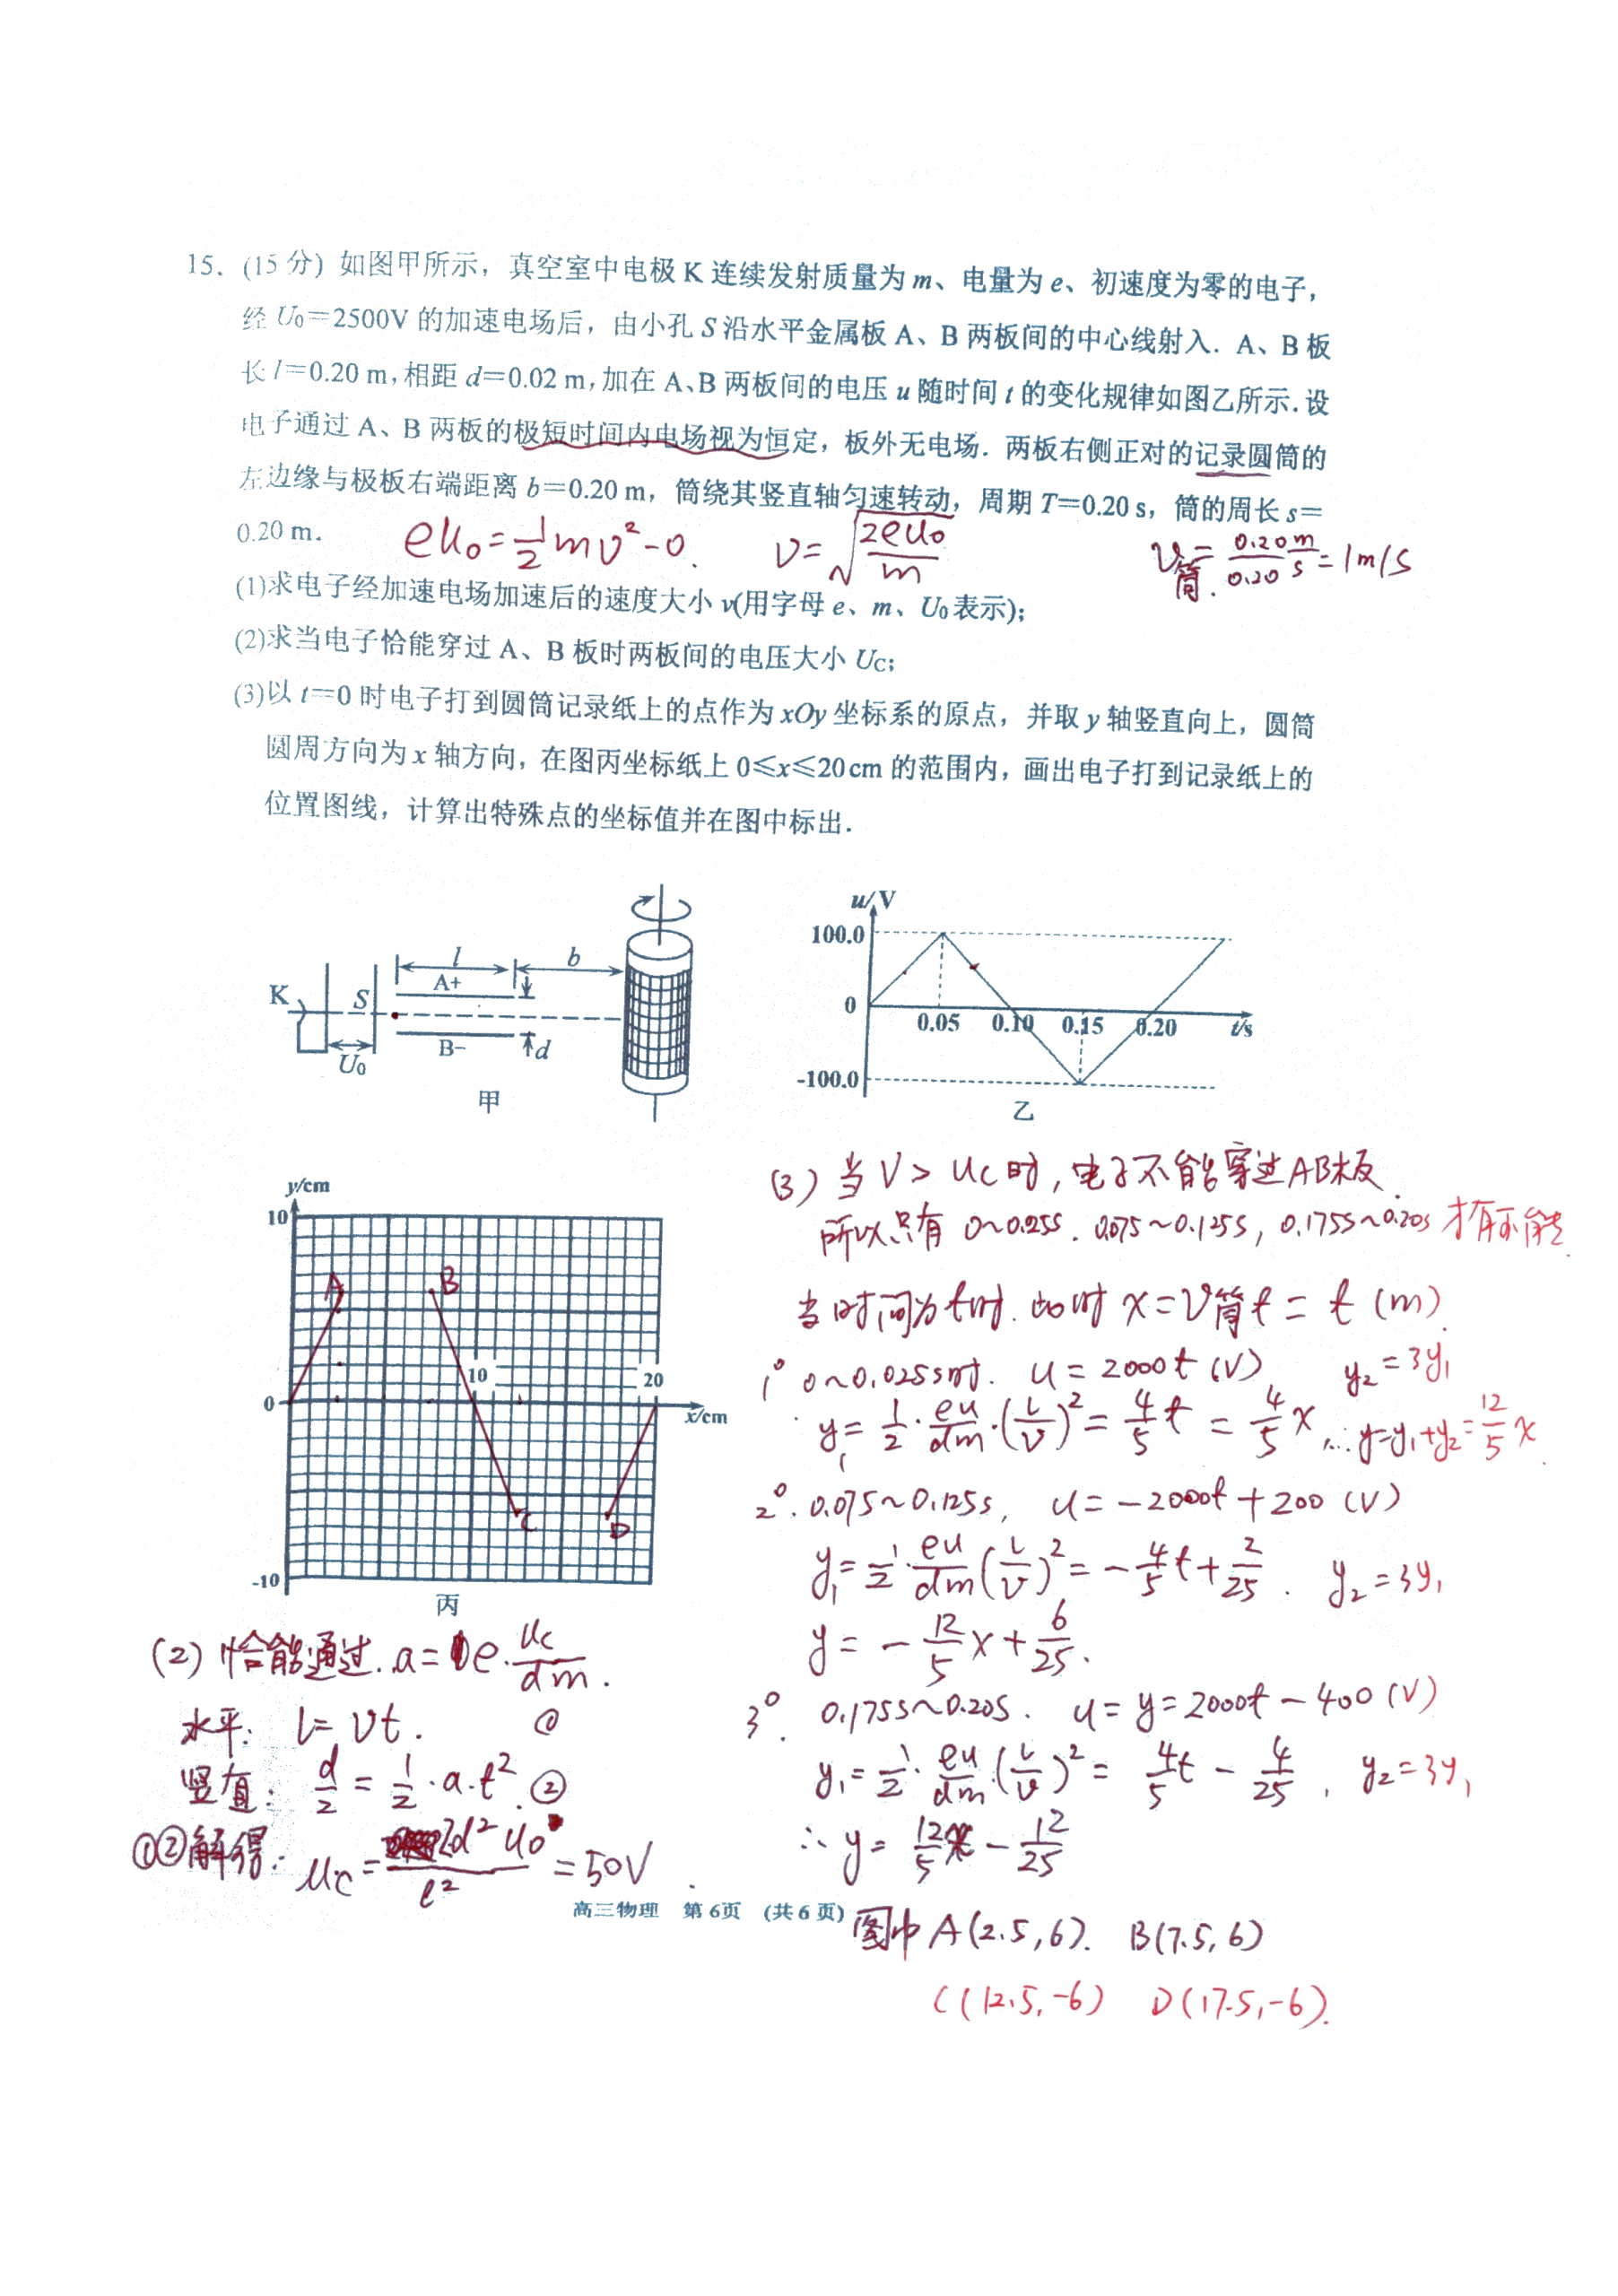 15. (15 分) 如图甲所示，真空室中电极 K 连续发射质量为 m、电量为 e、初速度为零的电子，
经 U₀=2500V 的加速电场后，由小孔 S 沿水平金属板 A、B 两板间的中心线射入. A、B 板
长 l=0.20 m,相距 d=0.02 m,加在 A、B 两板间的电压 u 随时间 t 的变化规律如图乙所示.设
电子通过 A、B 两板的极短时间内电场视为恒定，板外无电场. 两板右侧正对的记录圆筒的
左边缘与极板右端距离 b=0.20 m，筒绕其竖直轴匀速转动，周期 T=0.20 s，筒的周长 s=
0.20 m.
eU₀=½mv²-0. v=√(2eU₀/m) v筒.=0.20m/0.20s=1m/s
(1)求电子经加速电场加速后的速度大小 v(用字母 e、m、U₀表示);
(2)求当电子恰能穿过 A、B 板时两板间的电压大小 Uc;
(3)以 t=0 时电子打到圆筒记录纸上的点作为 xOy 坐标系的原点，并取 y 轴竖直向上，圆筒
圆周方向为 x 轴方向，在图丙坐标纸上 0≤x≤20cm 的范围内，画出电子打到记录纸上的
位置图线，计算出特殊点的坐标值并在图中标出.
K S U₀ l A+ B- d b
甲
u/V
100.0
0
0.05 0.10 0.15 0.20 t/s
-100.0
乙
y/cm
10
A B
10 20
0
x/cm
C D
-10
丙
(2) 恰能通过. a=e·Uc/dm.
水平: l=vt. ①
竖直: d/2=½·a·t². ②
①②解得: Uc=2d²U₀/l²=50V.
(3) 当 V>Uc时, 电子不能穿过AB板.
所以只有 0~0.25s. 0.075~0.125s, 0.175s~0.20s 才有可能.
当时间为t时. 此时 x=v筒t=t (m).
1° 0~0.025s时. u=2000t (V) y₂=3y₁
y₁=½·eu/dm·(l/v)²=4/5t=4/5x, ∴y=y₁+y₂=12/5x.
2°. 0.075~0.125s, u=-2000t+200 (V)
y₁=½·eu/dm(l/v)²=-4/5t+2/25. y₂=3y₁
y=-12/5x+6/25.
3°. 0.175s~0.20s. u=y=2000t-400 (V)
y₁=½·eu/dm·(l/v)²=4/5t-4/25, y₂=3y₁
∴ y=12/5x-12/25
高三物理 第6页 (共6页)
图中 A(2.5,6). B(7.5,6)
C(12.5,-6) D(17.5,-6).